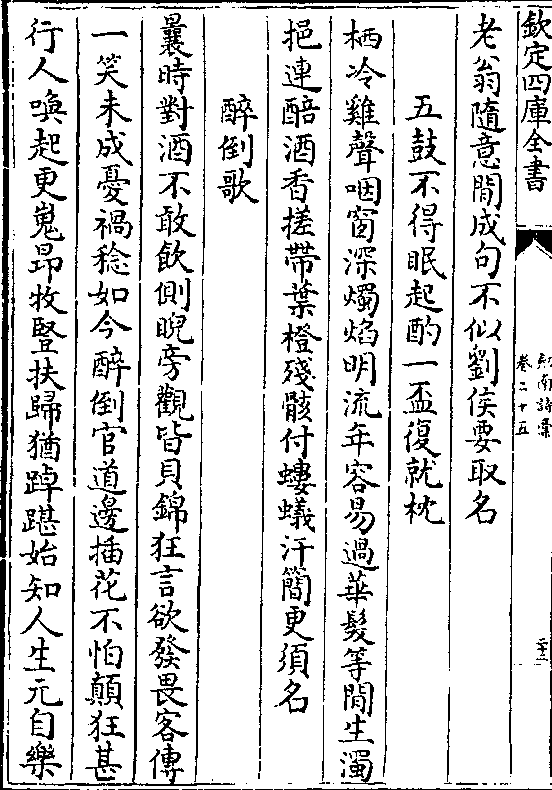 欽定四庫全書
劍南詩稾
卷二十五
老翁隨意閒成句不似劉侯要取名
五鼓不得眠起酌一盃復就枕
栖冷雞聲咽窗深燭焰明流年容易過華髮等閒生濁
挹連醅酒香搓帶葉橙殘骸付螻蟻汗簡更須名
醉倒歌
曩時對酒不敢飲側睨旁觀皆貝錦狂言欲發畏客傳
一笑未成憂禍稔如今醉倒官道邊插花不怕顛狂甚
行人喚起更嵬昂牧豎扶歸猶踔踸始知人生元自樂